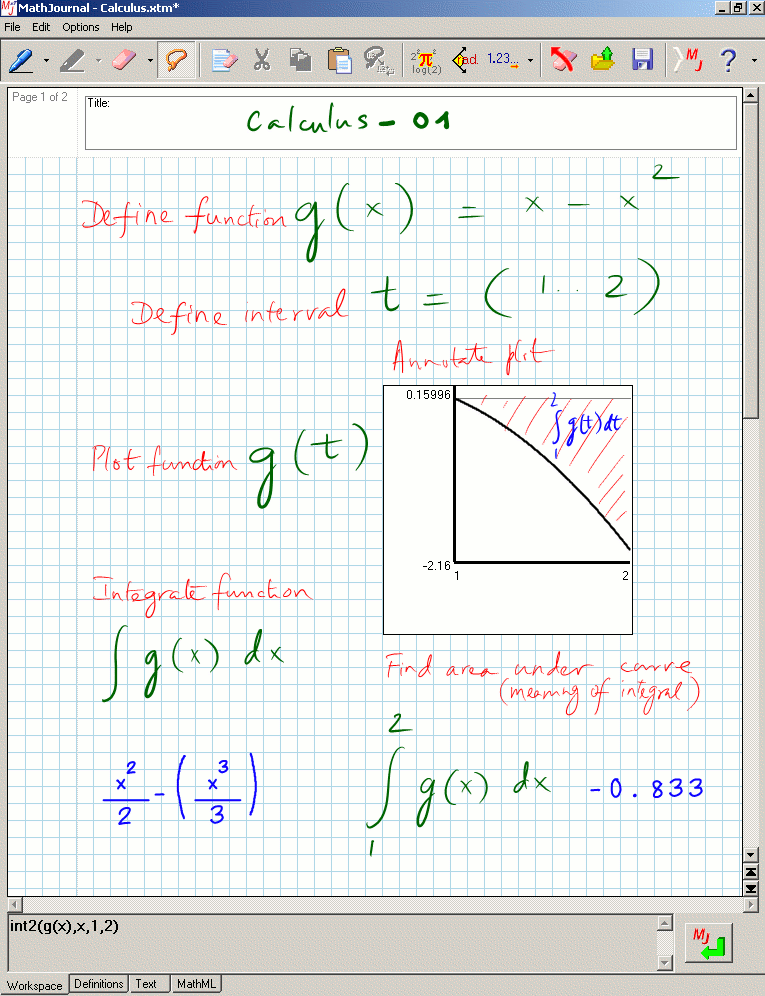 MathJournal - Calculus.xtm*
File Edit Options Help
2^e π log(2) rad. 1.23... MJ ?
Page 1 of 2
Title:
Calculus - 01
Define function g(x) = x - x²
Define interval t = (1..2)
Annotate plot
0.15996
∫₁² g(t) dt
Plot function g(t)
-2.16
1 2
Integrate function
∫ g(x) dx
Find area under curve
(meaning of integral)
x²/2 - (x³/3)
∫₁² g(x) dx -0.833
int2(g(x),x,1,2)
MJ
Workspace Definitions Text MathML